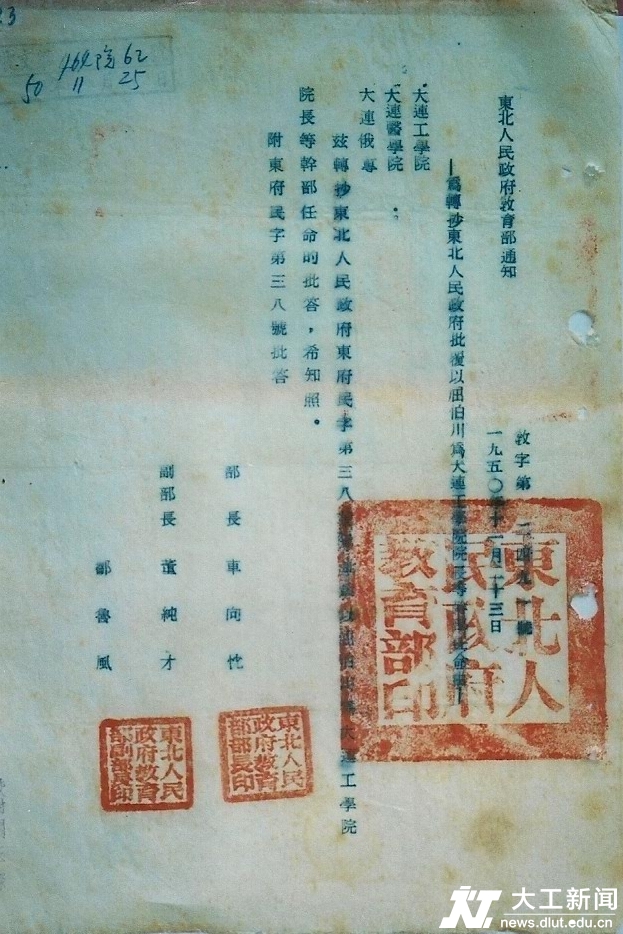 東北人民政府教育部通知
教字第二四九一號
一九五〇年十一月二十三日
—爲轉抄東北人民政府批覆以屈伯川爲大連工學院院長等
大連工學院
大連醫學院
大連俄專
茲轉抄東北人民政府東府民字第三八 以屈伯川爲大連工學院
院長等幹部任命的批答，希知照。
附東府民字第三八號批答
部長 車向忱
副部長 董純才
鄒魯風
東北人民政府教育部印
東北人民政府教育部部長印
東北人民政府教育部副部長印
23
院 62
50 11 25
大工新闻
news.dlut.edu.cn